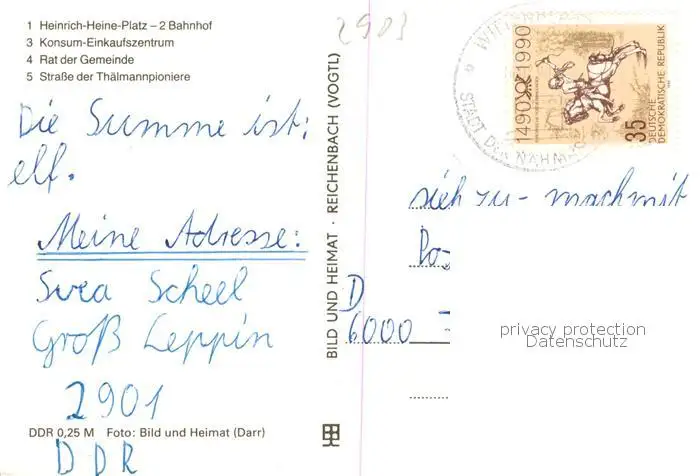 1 Heinrich-Heine-Platz – 2 Bahnhof
3 Konsum-Einkaufszentrum
4 Rat der Gemeinde
5 Straße der Thälmannpioniere
Die Summe ist:
elf.
Meine Adresse:
Svea Scheel
Groß Leppin
2901
DDR 0,25 M Foto: Bild und Heimat (Darr)
DDR
BILD UND HEIMAT · REICHENBACH (VOGTL)
2903
STADT DER NÄHM
1490 1990
35
DEUTSCHE
DEMOKRATISCHE REPUBLIK
sieh zu - mach mit
D
6000
privacy protection
Datenschutz